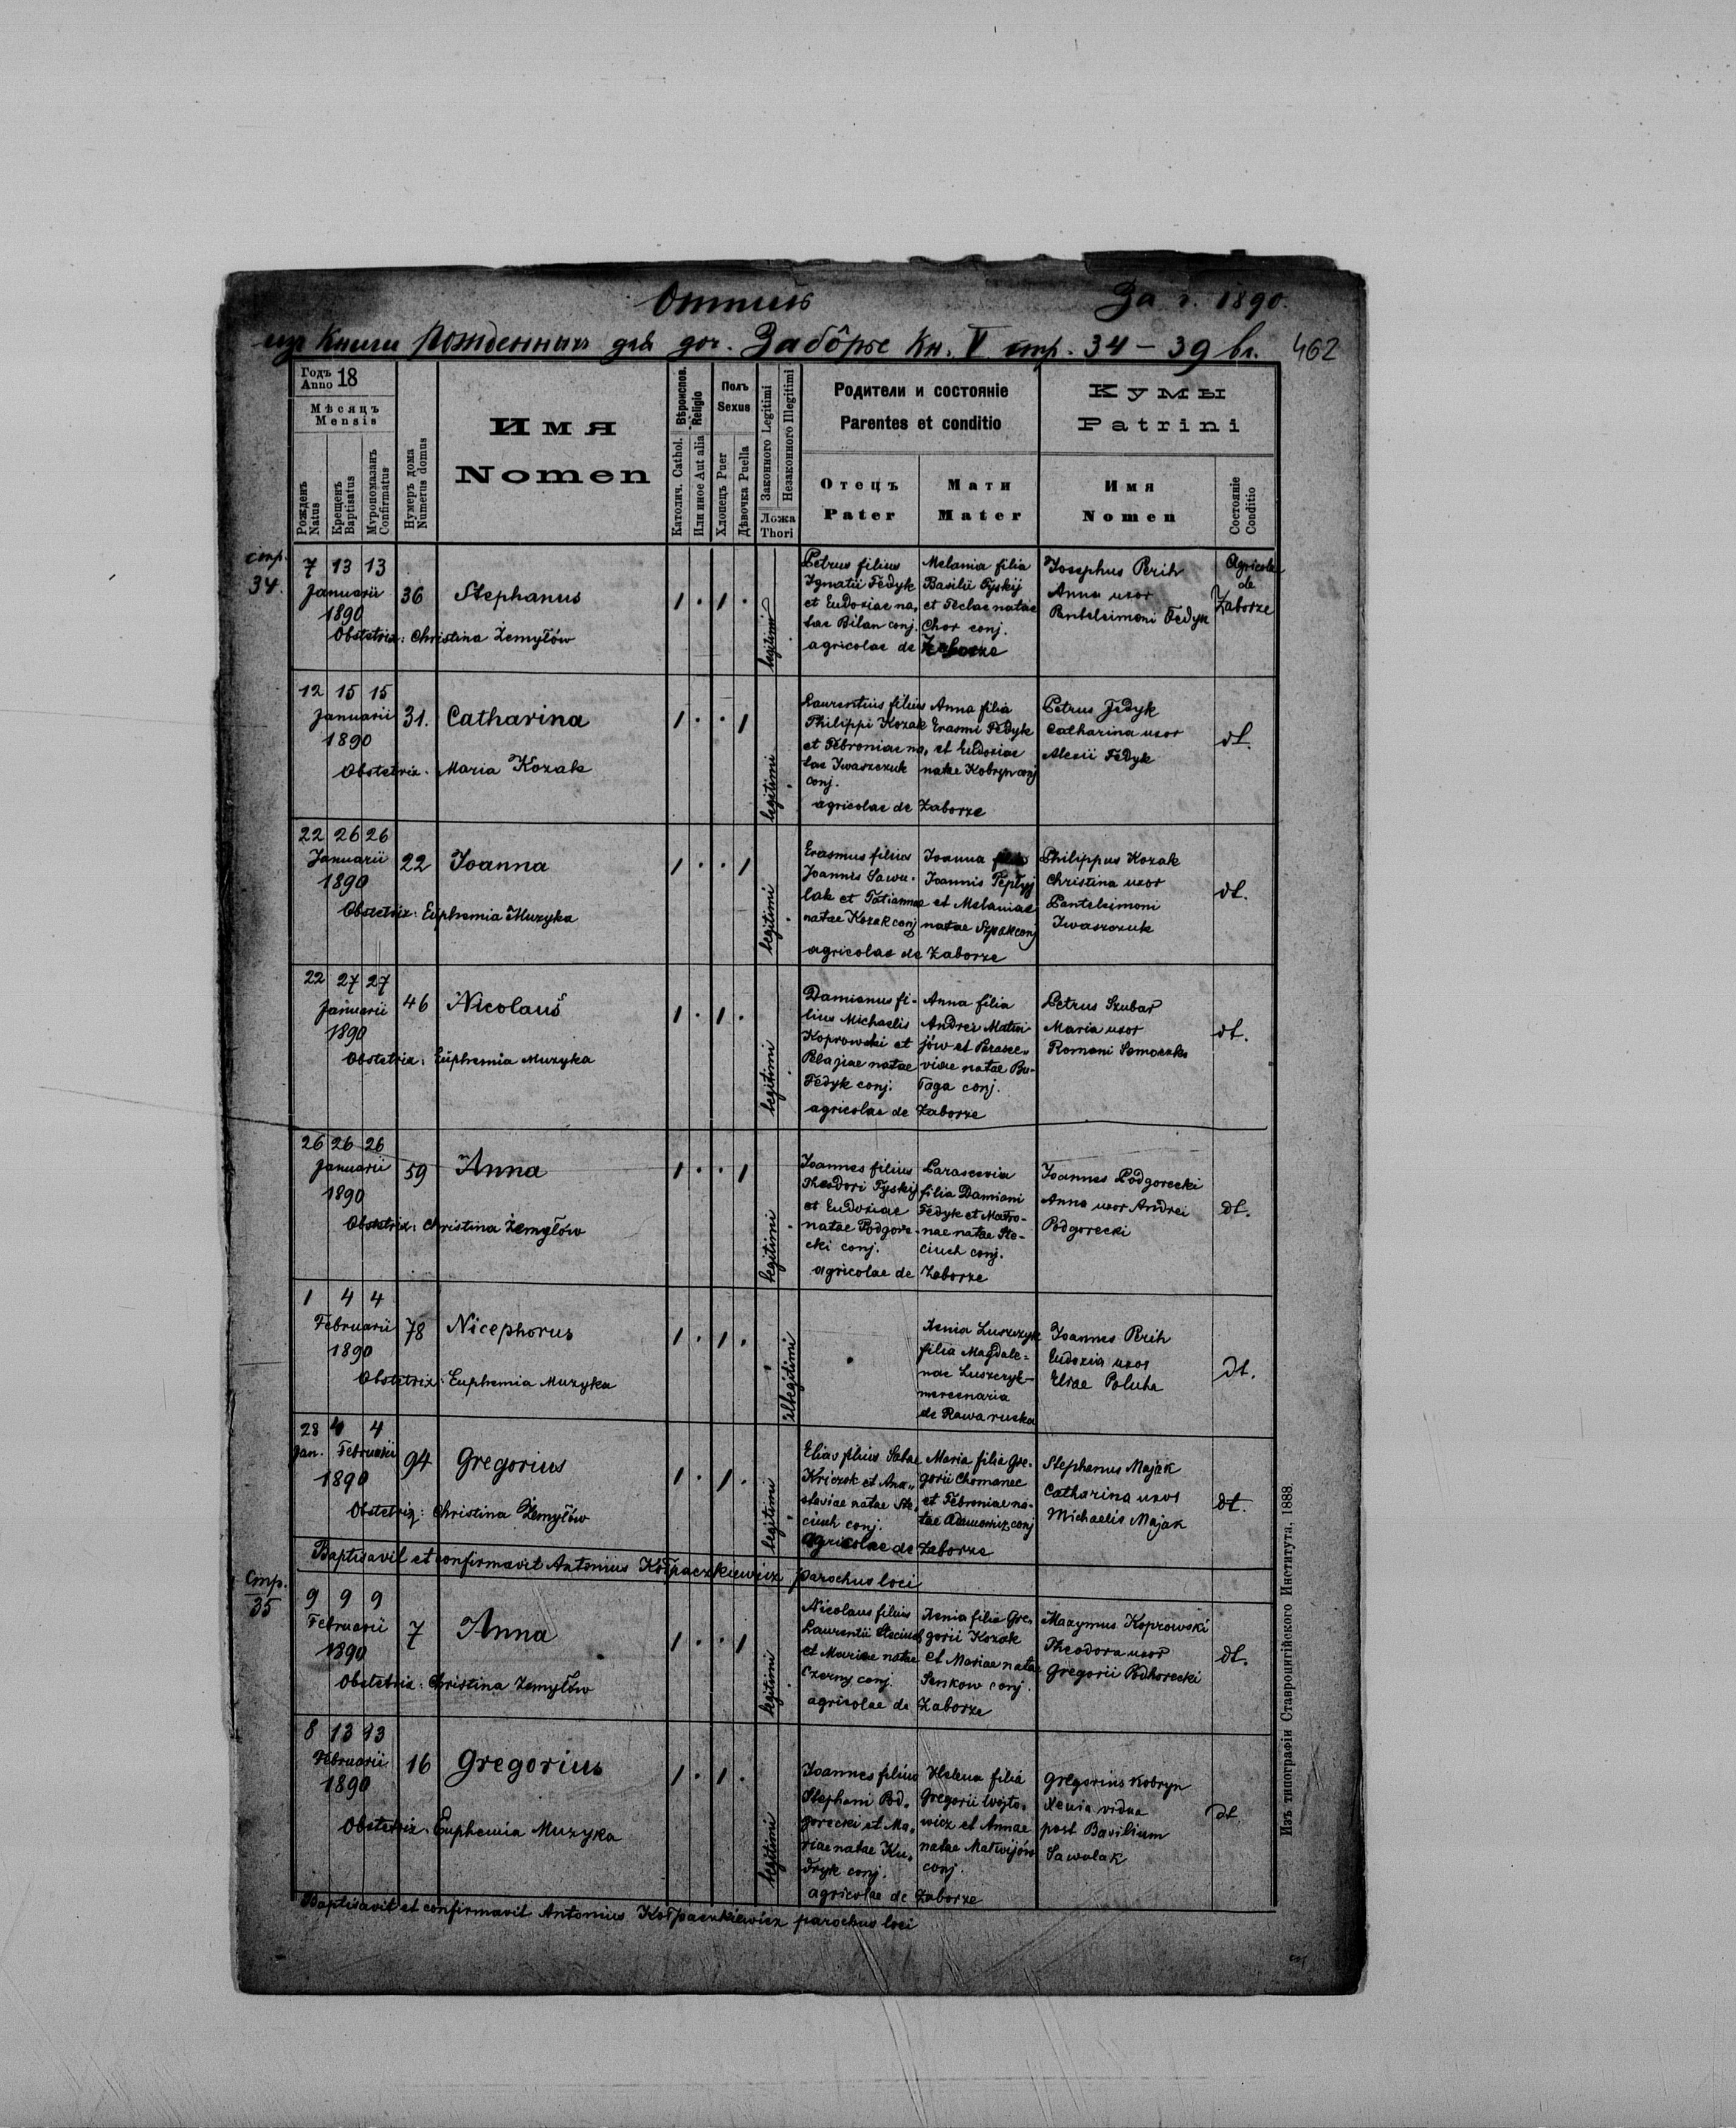 Отпись За г. 1890.
изъ Книги Рожденныхъ для доч. Забôрье Кн. V стр. 34 – 39 вл. 462
Годъ Anno 18
Мѣсяцъ Mensis
Рожденъ Natus
Крещенъ Baptisatus
Муропомазанъ Confirmatus
Нумеръ дома Numerus domus
Имя
Nomen
Вѣроиспов. Religio
Католич. Cathol.
Или иное Aut alia
Полъ Sexus
Хлопецъ Puer
Дѣвочка Puella
Законного Legitimi
Незаконного Illegitimi
Ложа Thori
Родители и состояніе
Parentes et conditio
Отецъ
Pater
Мати
Mater
Кумы
Patrini
Имя
Nomen
Состояніе Conditio
стр. 34.
7 13 13
Januarii
1890
36 Stephanus
1 . 1 .
legitimi
Obstetrix: Christina Żemyłów
Petrus filius
Ignatii Fedyk
et Eudoxiae na,
tae Bilan conj.
Melania filia
Basilii Tyskij
et Teclae natae
Chor conj.
agricolae de Zaborze
Josephus Perih
Anna uxor
Panteleimoni Fedyk
Agricolae
de
Zaborze
12 15 15
Januarii
1890
31. Catharina
1 . . 1
legitimi
Obstetrix. Maria Kozak
Laurentius filius
Philippi Kozak
et Febroniae na,
tae Iwaszczuk
conj.
Anna filia
Erasmi Fedyk
et Eudoxiae
natae Kobryn conj
agricolae de Zaborze
Petrus Fedyk
Catharina uxor
Alexii Fedyk
dt.
22 26 26
Januarii
1890
22 Joanna
1 . . 1
legitimi
Obstetrix: Euphemia Muzyka
Erasmus filius
Joannis Sawu.
lak et Tatiannae
natae Kozak conj
Joanna filia
Joannis Tepłyj
et Melaniae
natae Szpak conj
agricolae de Zaborze
Philippus Kozak
Christina uxor
Panteleimoni
Iwaszczuk
dt.
22 27 27
Januarii
1890
46 Nicolaus
1 . 1 .
legitimi
Obstetrix: Euphemia Muzyka
Damianus fi-
lius Michaelis
Koprowski et
Pelagiae natae
Fedyk conj.
Anna filia
Andrei Matwi
jów et Parasce,,
viae natae Bu-
taga conj.
agricolae de Zaborze
Petrus Szubar
Maria uxor
Romani
dt.
26 26 26
Januarii
1890
59 Anna
1 . . 1
legitimi
Obstetrix: Christina Żemyłów
Joannes filius
Theodori Tyskij
et Eudoxiae
natae Podgore-
cki conj.
Parascevia
filia Damiani
Fedyk et Matro-
nae natae Ste-
ciuch conj.
agricolae de Zaborze
Joannes Podgorecki
Anna uxor Andrei
Podgorecki
dt.
1 4 4
Februarii
1890
78 Nicephorus
1 . 1 .
illegitimi
Obstetrix: Euphemia Muzyka
Xenia Luszczyk
filia Magdale=
nae Luszczyk
mercenaria
de Rawa ruska
Joannes Perih
Eudoxia uxor
Eliae Poluha
dt.
28 4 4
Jan. Februarii
1890
94 Gregorius
1 . 1 .
legitimi
Obstetrix: Christina Żemyłów
Elias filius Sabae
Kriczok et Ana,,
stasiae natae Ste,
ciuch conj.
Maria filia Gre-
gorii Chomanec
et Febroniae na-
tae Adamowicz conj
Agricolae de Zaborze
Stephanus Majak
Catharina uxor
Michaelis Majak
dt.
Baptisavit et confirmavit Antonius Kołpaczkiewicz parochus loci
Стр. 35
9 9 9
Februarii
1890
7 Anna
1 . . 1
legitimi
Obstetrix: Christina Żemyłów
Nicolaus filius
Laurentii Steciuch
et Mariae natae
Czerny conj.
Xenia filia Gre,
gorii Kozak
et Mariae natae
Senkow conj.
agricolae de Zaborze
Maxymus Koprowski
Theodora uxor
Gregorii Podhorecki
dt.
8 13 13
Februarii
1890
16 Gregorius
1 . 1 .
legitimi
Obstetrix. Euphemia Muzyka
Joannes filius
Stephani Pod,
gorecki et Ma,
riae natae Ku,
dryk conj.
Helena filia
Gregorii Wojto,
wicz et Annae
natae Matwijów
conj.
agricolae de Zaborze
Gregorius Kobryn
Xenia vidua
post Basilium
Sawulak
dt.
Baptisavit et confirmavit Antonius Kołpaczkiewicz parochus loci
Изъ типографіи Ставропигійского Института, 1888.